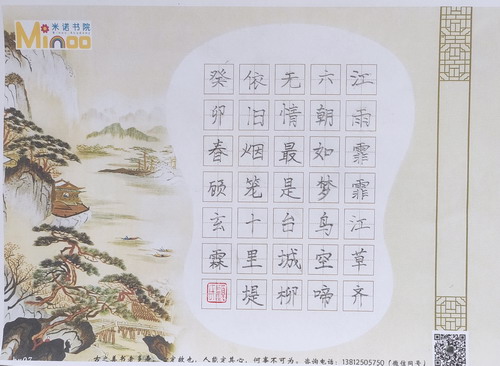 米诺书院
Minoo
江雨霏霏江草齐
六朝如梦鸟空啼
无情最是台城柳
依旧烟笼十里堤
癸卯春顾玄霖
人能克其心，何事不可为。咨询电话：13812505750（微信同号）